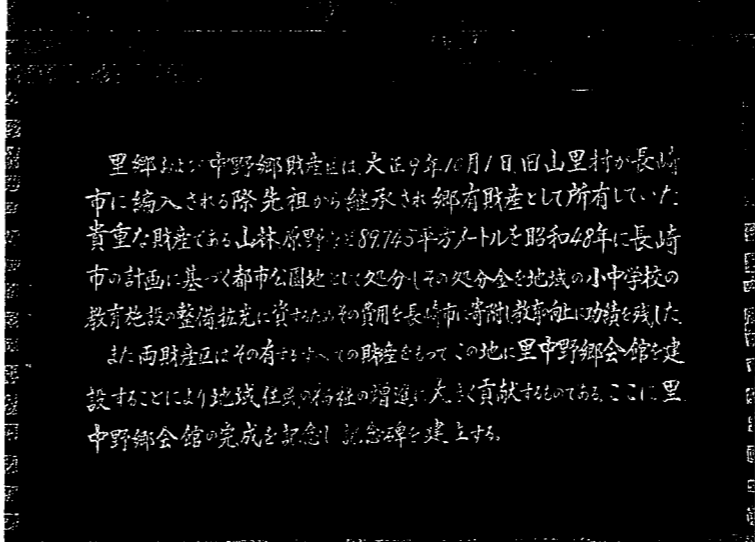 里郷および中野郷財産区は、大正9年10月1日旧山里村が長崎
市に編入される際先祖から継承され郷有財産として所有していた
貴重な財産である山林原野など89.745平方メートルを昭和48年に長崎
市の計画に基づく都市公園地として処分しその処分金を地域の小中学校の
教育施設の整備拡充に資するためその費用を長崎市に寄附し教育向上に功績を残した
また両財産区はその有するすべての財産をもってこの地に里中野郷会館を建
設することにより地域住民の福祉の増進に大きく貢献するものである。ここに里
中野郷会館の完成を記念し記念碑を建立する。